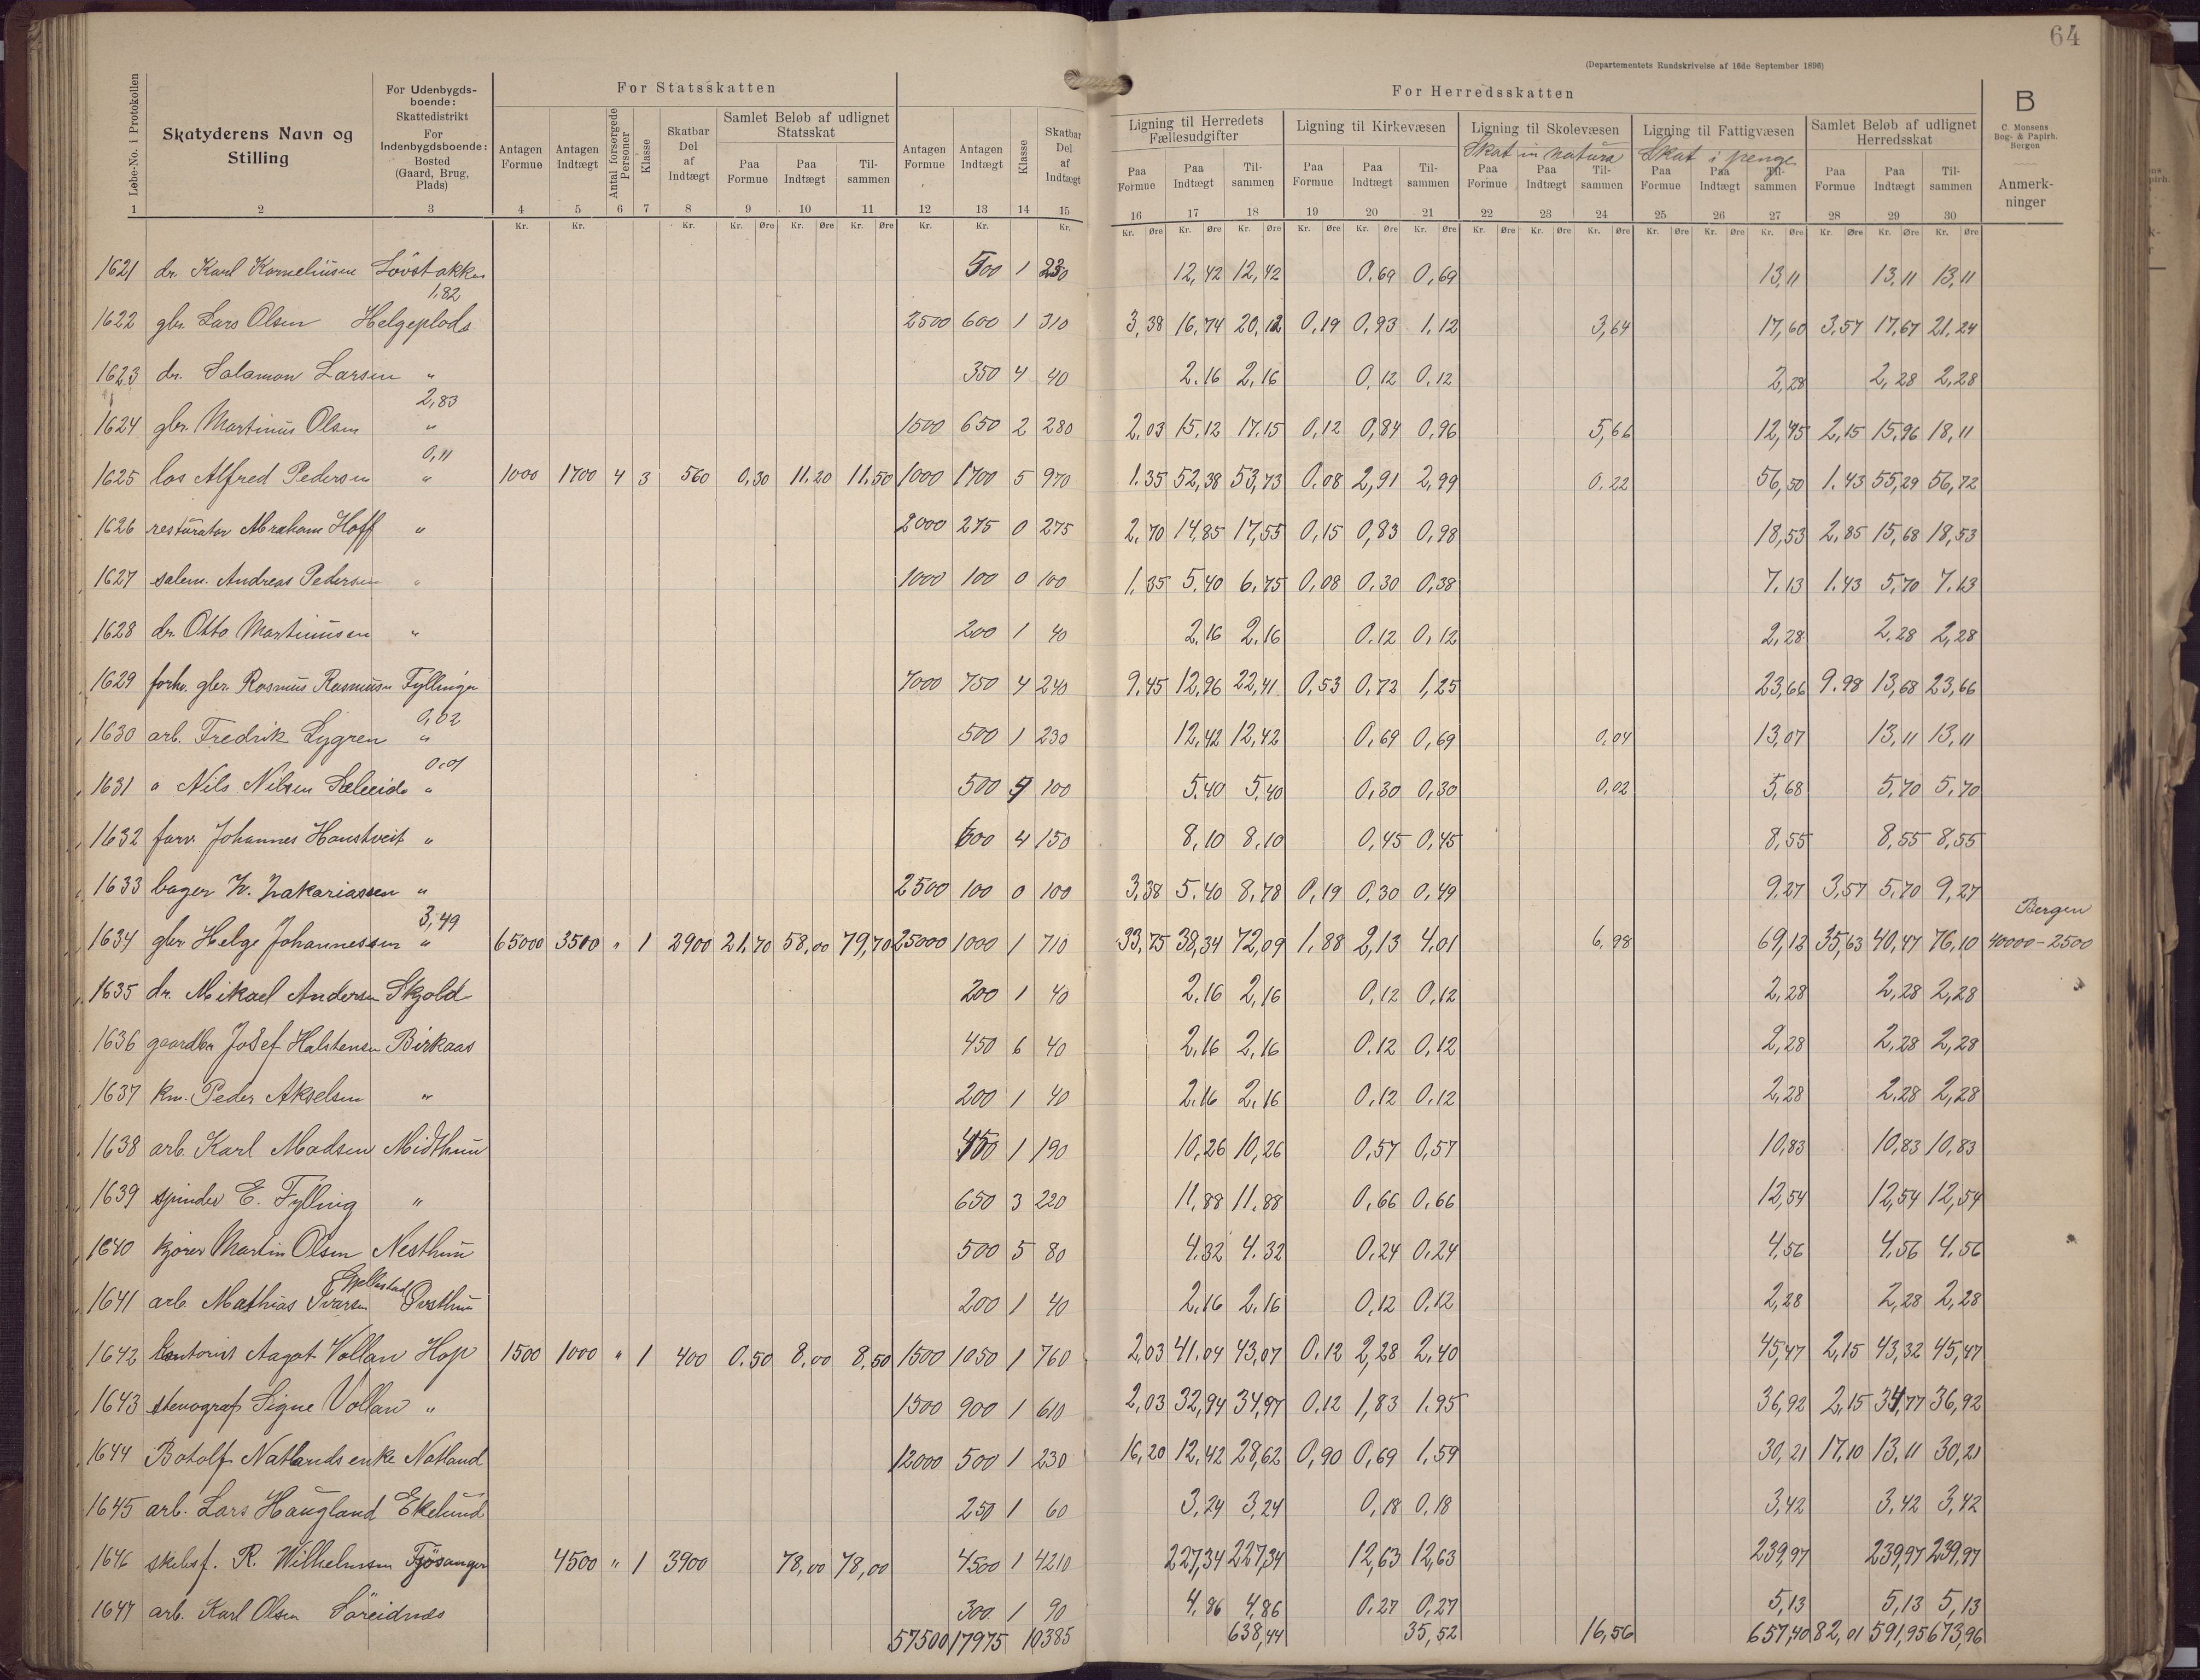 64
(Departementets Rundskrivelse af 16de September 1896)
For Statsskatten
For Herredsskatten
B
C. Monsens
Bog- & Papirh.
Bergen
Løbe-No. i Protokollen
Skatyderens Navn og Stilling
For Udenbygdsboende: Skattedistrikt For Indenbygdsboende: Bosted (Gaard, Brug, Plads)
Antagen Formue
Antagen Indtægt
Antal forsørgede Personer
Klasse
Skatbar Del af Indtægt
Samlet Beløb af udlignet Statsskat
Paa Formue Paa Indtægt Tilsammen
Antagen Formue
Antagen Indtægt
Klasse
Skatbar Del af Indtægt
Ligning til Herredets Fællesudgifter
Paa Formue Paa Indtægt Tilsammen
Ligning til Kirkevæsen
Paa Formue Paa Indtægt Tilsammen
Ligning til Skolevæsen
Skat in natura
Paa Formue Paa Indtægt Tilsammen
Ligning til Fattigvæsen
Skat i penge
Paa Formue Paa Indtægt Tilsammen
Samlet Beløb af udlignet Herredsskat
Paa Formue Paa Indtægt Tilsammen
Anmerkninger
1 2 3 4 5 6 7 8 9 10 11 12 13 14 15 16 17 18 19 20 21 22 23 24 25 26 27 28 29 30
Kr. Kr. Kr. Kr. Øre Kr. Øre Kr. Øre Kr. Kr. Kr. Kr. Øre Kr. Øre Kr. Øre Kr. Øre Kr. Øre Kr. Øre Kr. Øre Kr. Øre Kr. Øre Kr. Øre Kr. Øre Kr. Øre Kr. Øre Kr. Øre Kr. Øre
1621 dr. Karl Korneliusen Lövstakken 500 1 230 12,42 12,42 0,69 0,69 13,11 13,11 13,11
1,82
1622 gbr. Lars Olsen Helgeplads 2500 600 1 310 3,38 16,74 20,12 0,19 0,93 1,12 3,64 17,60 3,57 17,67 21,24
1623 dr. Salamon Larsen " 350 4 40 2.16 2,16 0,12 0,12 2,28 2,28 2,28
2,83
1624 gbr. Martinus Olsen " 1500 650 2 280 2,03 15,12 17.15 0,12 0,84 0,96 5,66 12,45 2,15 15,96 18,11
0,11
1625 los Alfred Pedersen " 1000 1700 4 3 560 0,30 11.20 11,50 1000 1700 5 970 1.35 52,38 53,73 0.08 2,91 2,99 0.22 56,50 1.43 55,29 56,72
1626 resturatør Abraham Hoff " 2000 275 0 275 2,70 14,85 17,55 0,15 0,83 0,98 18,53 2,85 15,68 18,53
1627 salem. Andreas Pedersen " 1000 100 0 100 1,35 5.40 6,75 0,08 0,30 0,38 7.13 1.43 5,70 7.13
1628 dr. Otto Martinusen " 200 1 40 2.16 2,16 0.12 0,12 2,28 2.28 2,28
1629 forhv. gbr. Rasmus Rasmusen Fyllingen 7000 750 4 240 9,45 12,96 22,41 0,53 0,72 1,25 23,66 9.98 13,68 23,66
0,02
1630 arb. Fredrik Lygren " 500 1 230 12,42 12,42 0,69 0,69 0,04 13,07 13,11 13,11
0,01
1631 " Nils Nilsen " 500 5 100 5.40 5,40 0,30 0,30 0,02 5,68 5,70 5,70
1632 farv. Johannes Haustveit " 600 4 150 8,10 8,10 0,45 0,45 8,55 8,55 8,55
1633 bager Zakariassen " 2500 100 0 100 3,38 5.40 8,78 0,19 0,30 0,49 9,27 3,57 5,70 9,27
3,49
1634 gbr Helge Johannessen " 65000 3500 " 1 2900 21,70 58,00 79,70 25000 1000 1 710 33,75 38,34 72,09 1,88 2,13 4,01 6,98 69,12 35,63 40,47 76,10 Bergen 40000-2500
1635 dr. Mikael Andersen Skjold 200 1 40 2.16 2,16 0,12 0,12 2,28 2,28 2,28
1636 gaardbr Josef Halstensen Birkaas 450 6 40 2,16 2,16 0.12 0,12 2,28 2,28 2,28
1637 km. Peder Akselsen " 200 1 40 2.16 2,16 0,12 0.12 2,28 2,28 2,28
1638 arb. Karl Madsen Midthun 450 1 190 10,26 10,26 0,57 0,57 10,83 10,83 10,83
1639 spinder E. Fylling " 650 3 220 11,88 11.88 0,66 0,66 12,54 12,54 12,54
1640 kjörer Martin Olsen Nesthun 500 5 80 4.32 4.32 0,24 0,24 4,56 4,56 4,56
1641 arb. Mathias Ivarsen Gjellestad Övsthun 200 1 40 2,16 2,16 0,12 0,12 2,28 2,28 2,28
1642 kontorist Aagot Vollan Hop 1500 1000 " 1 400 0.50 8,00 8,50 1500 1050 1 760 2,03 41.04 43,07 0.12 2,28 2,40 45,47 2,15 43,32 45,47
1643 stenograf Signe Vollan " 1500 900 1 610 2,03 32,94 34,97 0.12 1,83 1.95 36,92 2,15 34,77 36,92
1644 Botolf Natlands enke Natland 12000 500 1 230 16,20 12,42 28,62 0,90 0,69 1,59 30,21 17,10 13,11 30,21
1645 arb. Lars Haugland Ekelund 250 1 60 3,24 3,24 0,18 0,18 3,42 3,42 3,42
1646 skibsf. R. Wilhelmsen Fjösanger 4500 " 1 3900 78,00 78,00 4500 1 4210 227,34 227,34 12,63 12,63 239,97 239,97 239,97
1647 arb. Karl Olsen Söreidnes 300 1 90 4,86 4,86 0,27 0,27 5,13 5,13 5,13
57500 17975 10385 638,44 35,52 16,56 657,40 82,01 591,95 673,96